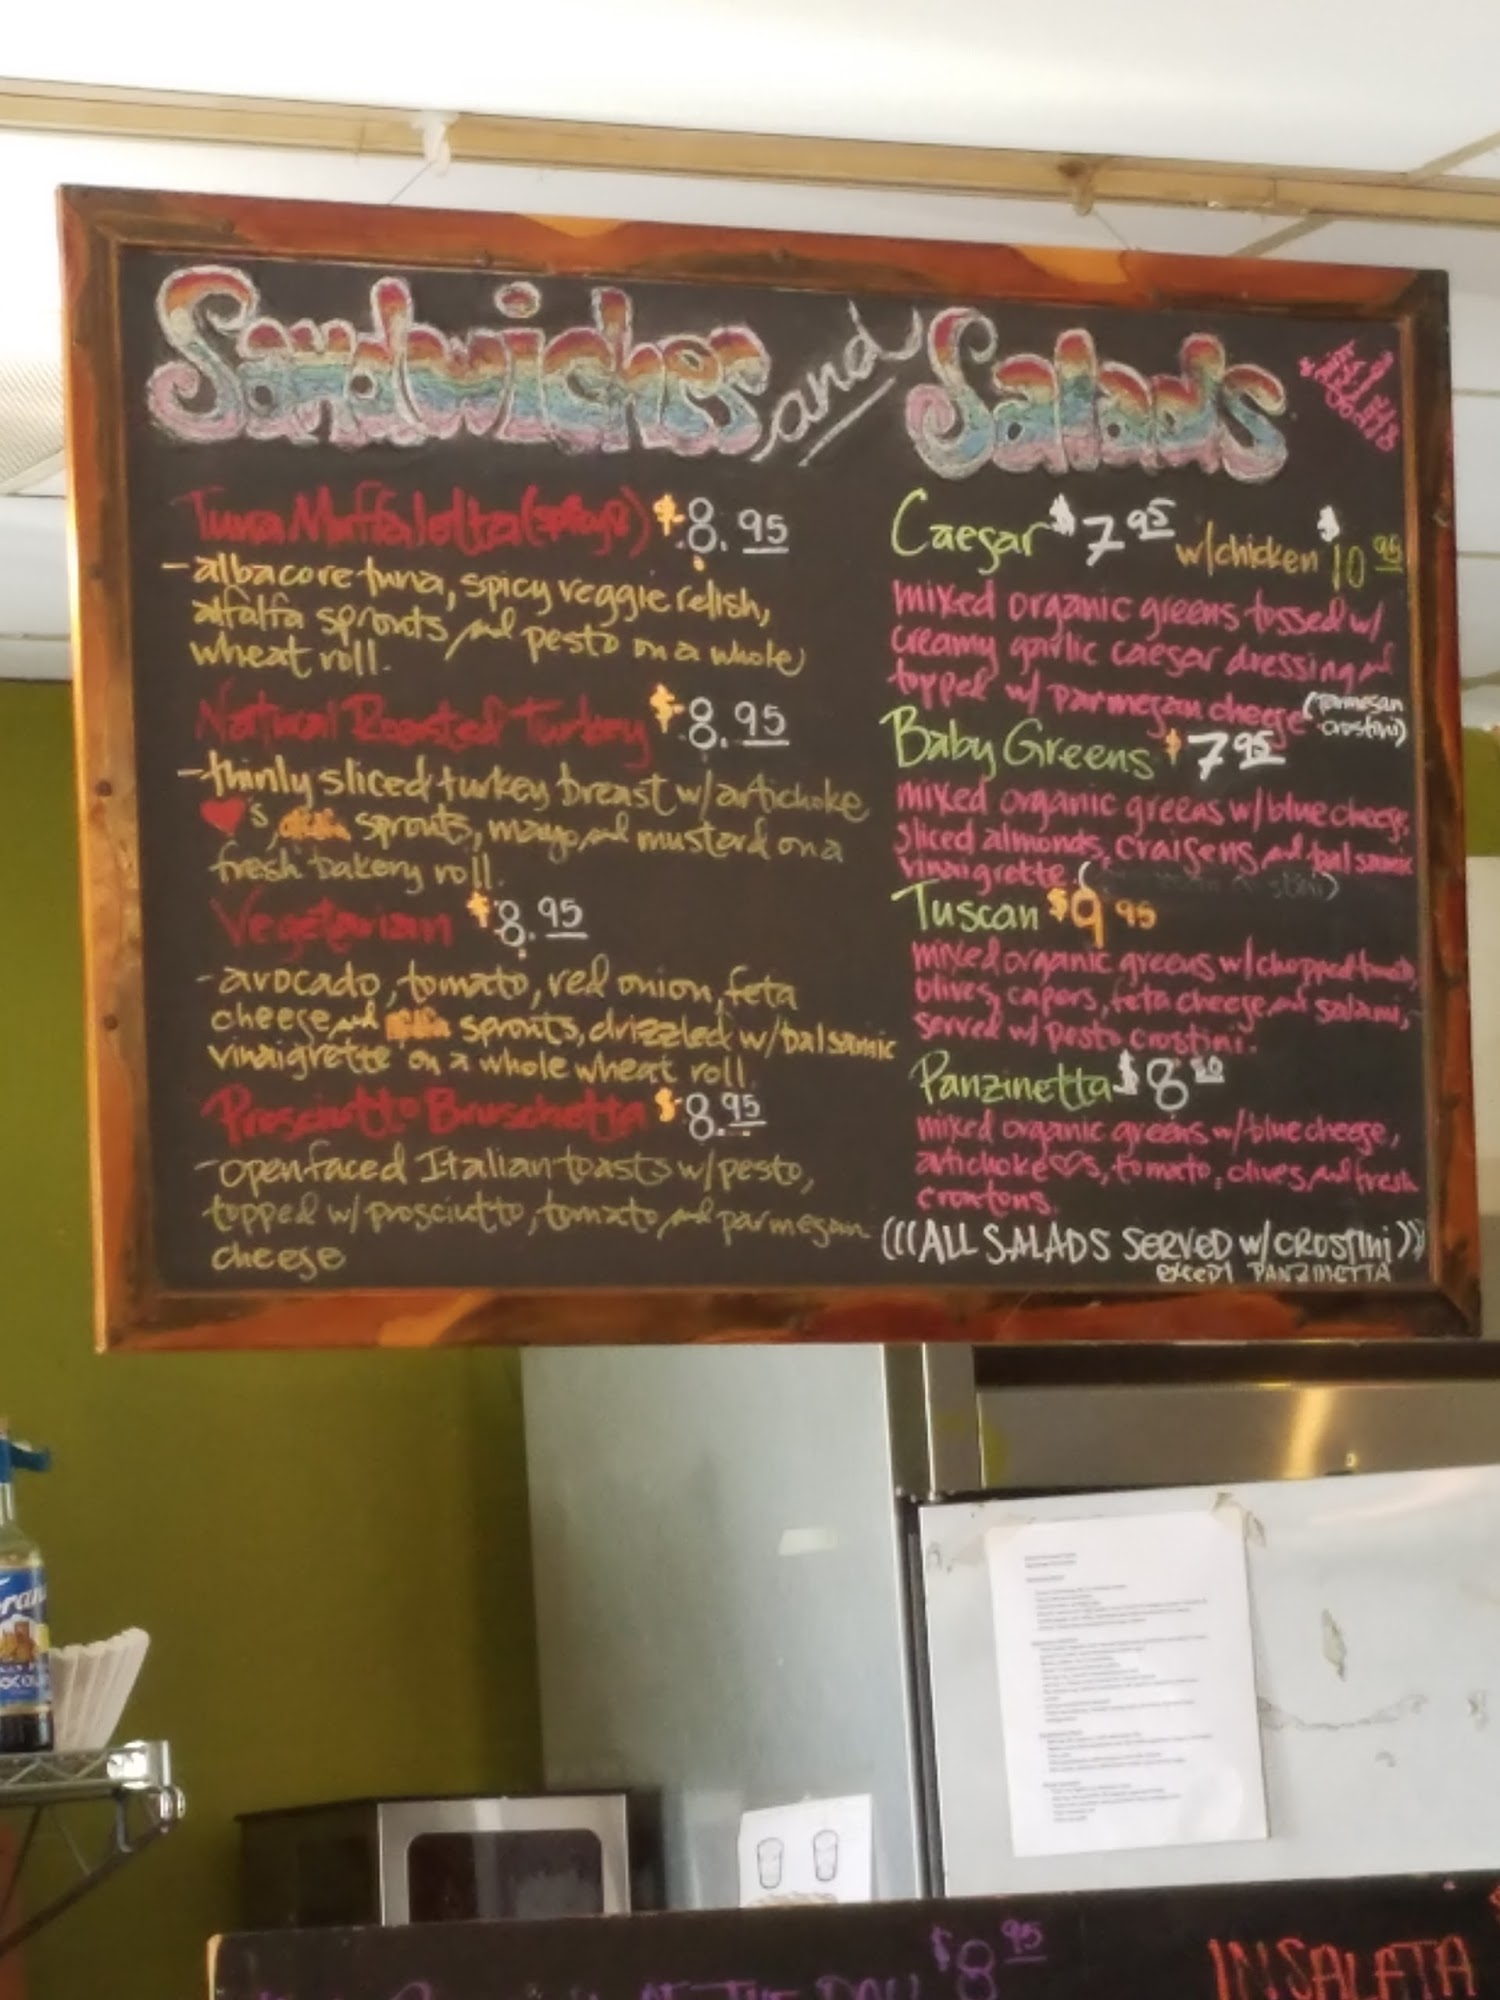 Sandwiches and Salads
Tuna Muffaletta (spicy!) $8.95
-albacore tuna, spicy veggie relish,
alfalfa sprouts and pesto on a whole
wheat roll.
Natural Roasted Turkey $8.95
-thinly sliced turkey breast w/artichoke
♥'s, sprouts, mayo and mustard on a
fresh bakery roll.
Vegetarian $8.95
-avocado, tomato, red onion, feta
cheese and sprouts, drizzled w/balsamic
vinaigrette on a whole wheat roll
Prosciutto Bruschetta $8.95
-openfaced Italian toasts w/pesto,
topped w/prosciutto, tomato, and parmegan
cheese
Caesar $7 95 w/chicken $10 95
mixed organic greens tossed w/
creamy garlic caesar dressing and
topped w/ parmegan cheese (parmesan
crostini)
Baby Greens $7 95
mixed organic greens w/blue cheese,
sliced almonds, craisens and balsamic
vinaigrette.
Tuscan $9 95
mixed organic greens w/chopped tomato,
olives, capers, feta cheese, and salami,
served w/ pesto crostini.
Panzinetta $8 50
mixed organic greens w/blue cheese,
artichoke ♡s, tomato, olives, and fresh
croutons.
(((ALL SALADS SERVED w/CROSTINI)))
EXCEPT PANZINETTA
$8 95
OF THE DAY
INSALATA